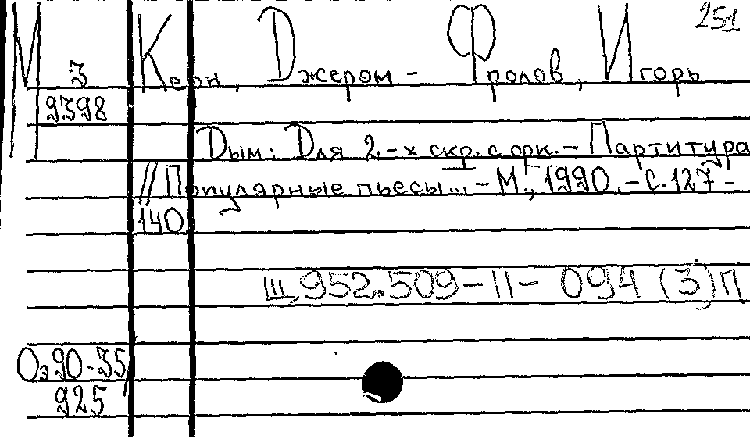 251
М 3 Керн, Джером - Фролов, Игорь
9398
Дым: Для 2-х скр. с орк. - Партитура
// Популярные пьесы... - М., 1990. - С. 127 -
140
Ш 952.509-11-094 (3)П
Оз 90-35
925